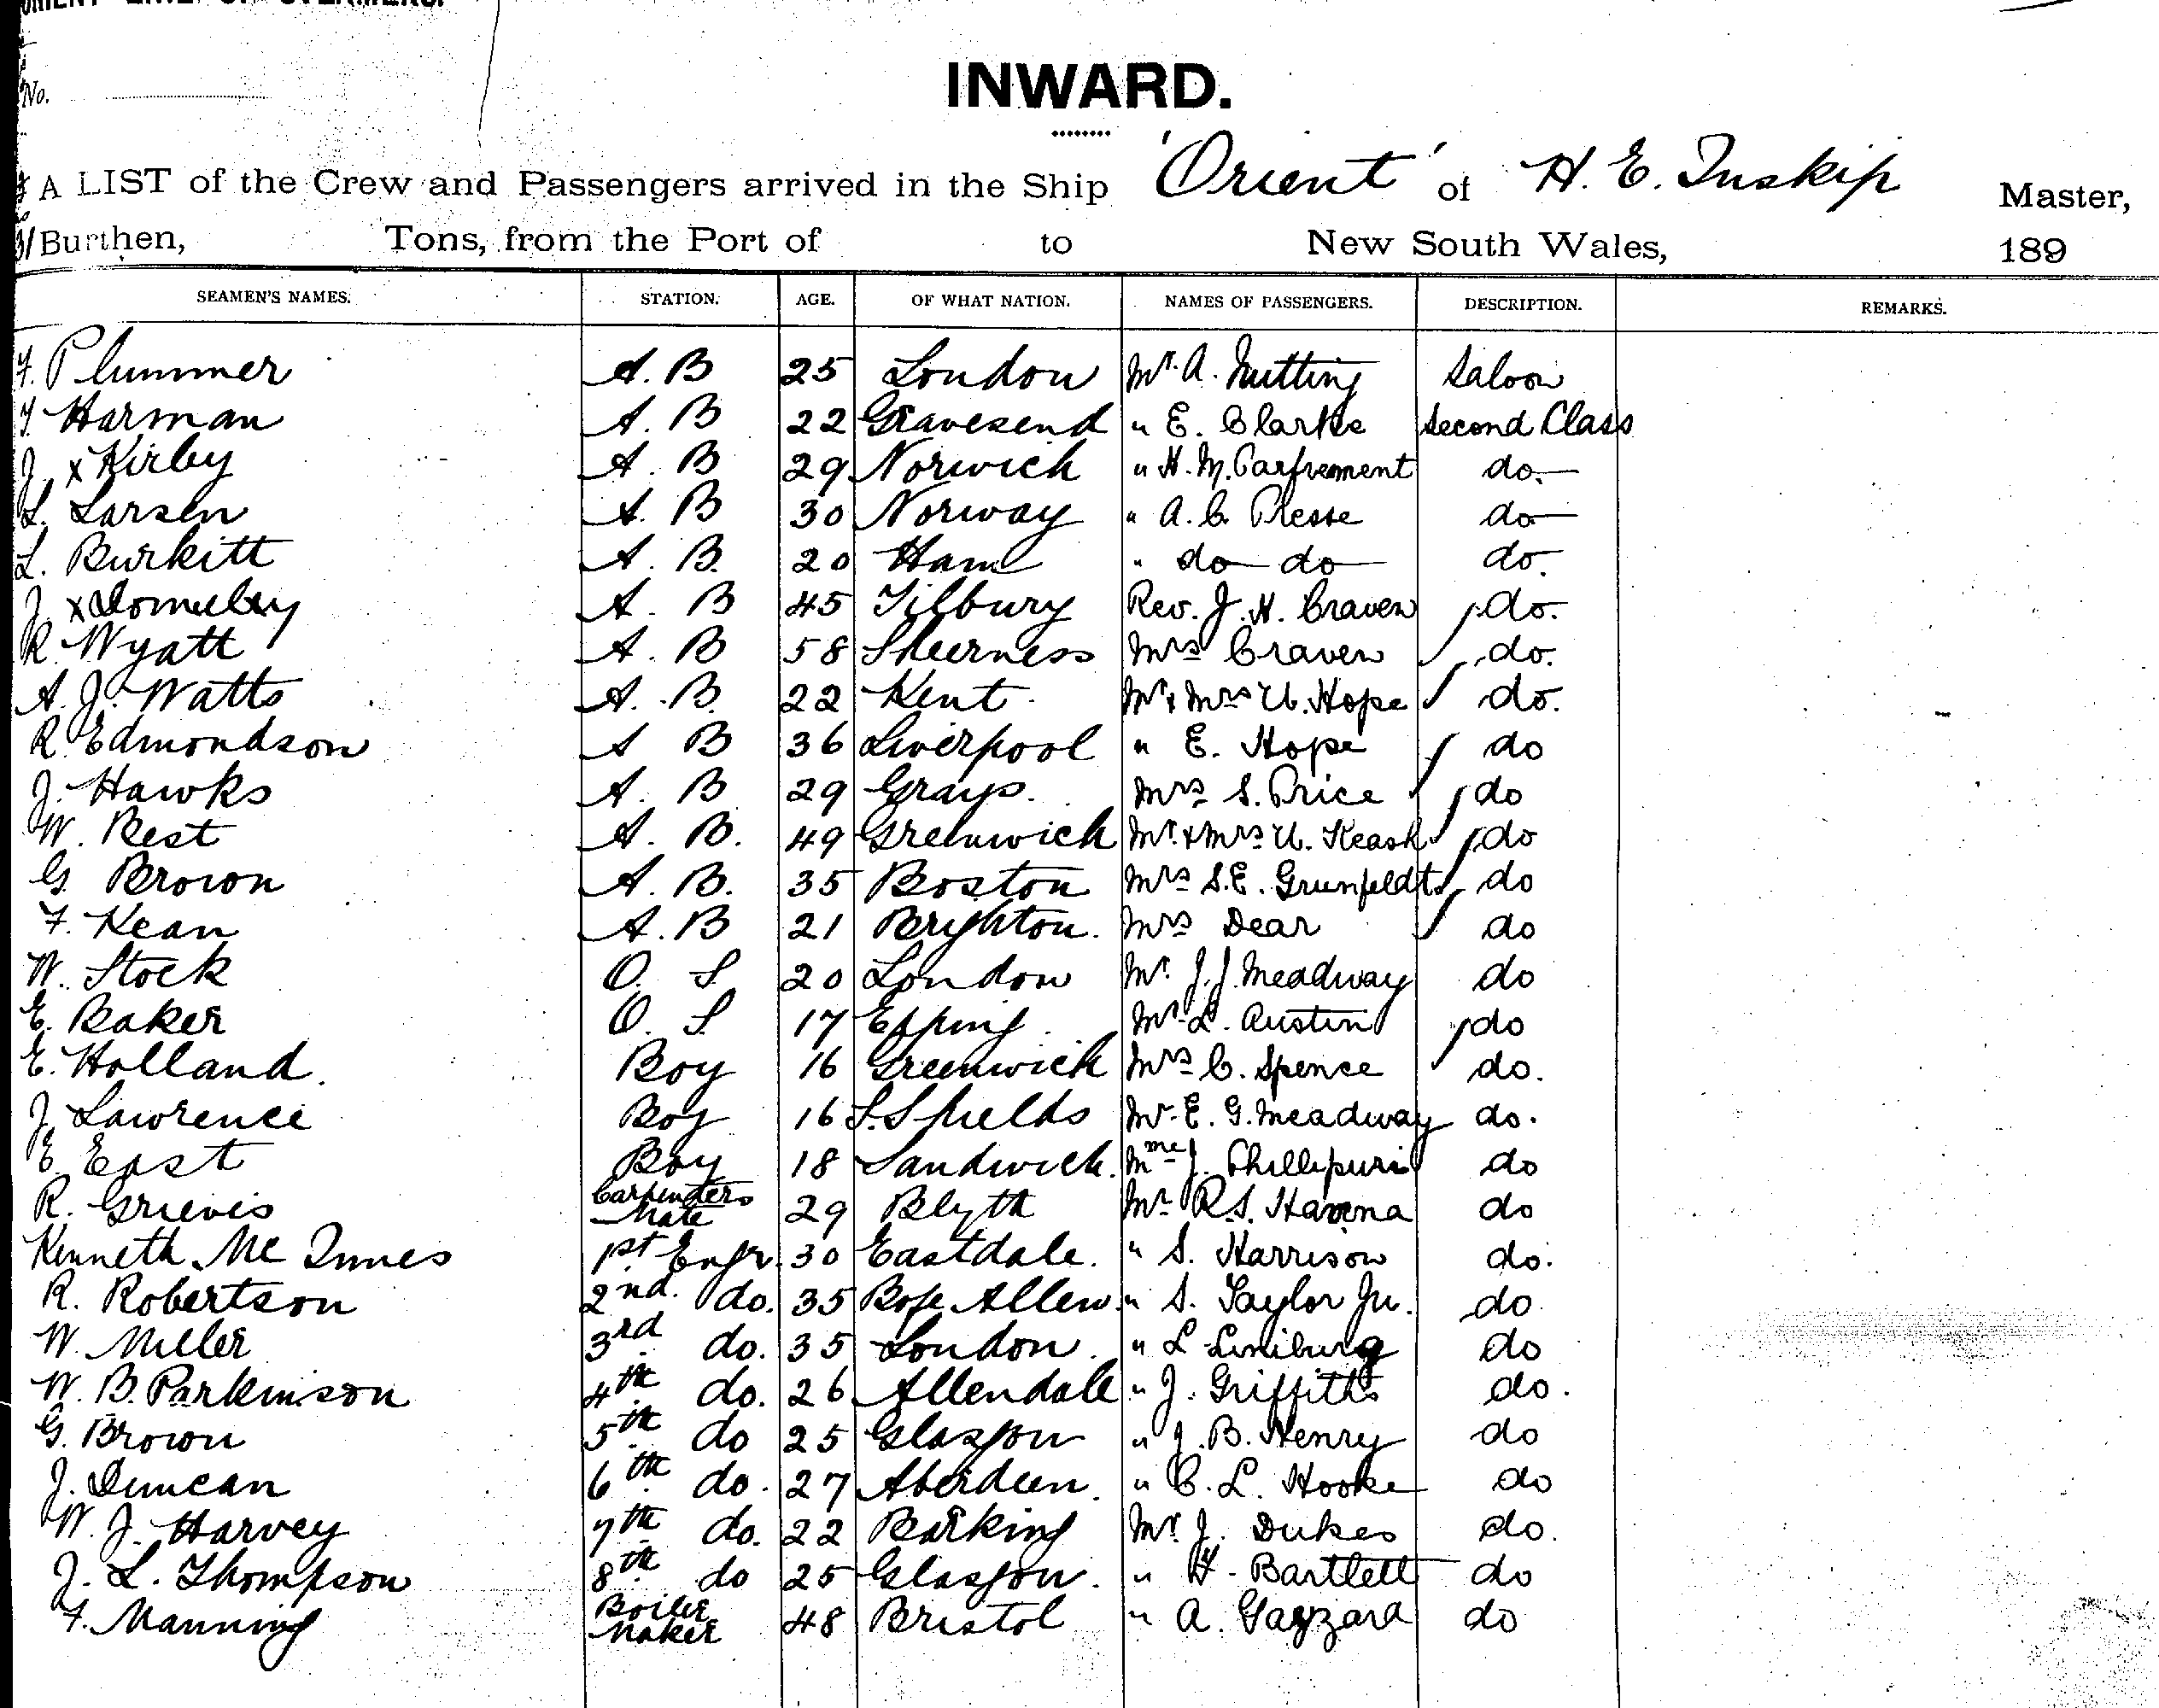 ORIENT LINE OF STEAMERS.
No.
INWARD.
A LIST of the Crew and Passengers arrived in the Ship 'Orient' of H. E. Inskip Master,
Burthen, Tons, from the Port of to New South Wales, 189
SEAMEN'S NAMES. STATION. AGE. OF WHAT NATION. NAMES OF PASSENGERS. DESCRIPTION. REMARKS.
F. Plummer A. B 25 London Mr. A. Nutting Saloon
Harman A. B 22 Gravesend " E. Clarke Second Class
J. x Kirby A. B 29 Norwich " H. M. Parfrement do.
L. Larsen A. B 30 Norway " A. C. Plesse do
L. Burkitt A. B. 20 Ham " do do do.
J. x A. B 45 Tilbury Rev. J. H. Craven do.
R. Wyatt A. B 58 Sheerness Mrs Craven do.
A. J. Watts A. B. 22 Kent Mr & Mrs U. Hope do.
R. Edmondson A B 36 Liverpool " E. Hope do
J. Hawks A. B 29 Grays. Mrs S. Price do
W. Best A. B. 49 Greenwich Mr. & Mrs U. Keash do
G Brown A. B. 35 Boston Mrs S. E. Grunfeldt do
F. Kean A. B 21 Brighton. Mrs Dear do
W. Stock O. S 20 London Mr. J. J. Meadway do
E. Baker O. S. 17 Epping Mr. L. Austin do
E. Holland. Boy 16 Greenwich Mrs C. Spence do.
J. Lawrence Boy 16 S. Shields Mr. E. G. Meadway do.
E. East Boy 18 Sandwich. Mme J. do
R. Grieves Carpenters Mate 29 Blyth Mr R. S. Havena do
Kenneth Mc Innes 1st Engr. 30 Eastdale. " S. Harrison do.
R. Robertson 2nd. do. 35 Allen " S. Taylor Ju. do
W. Miller 3rd do. 35 London. " L do
W. B. Parkinson 4th do. 26 Allendale " J. Griffiths do.
G. Brown 5th do 25 Glasgow " J. B. Henry do
J. Duncan 6th do. 27 Aberdeen. " C. L. Hooke do
W. J. Harvey 7th do. 22 Barking Mr. J. Dukes do.
J. L. Thompson 8th do 25 Glasgow. " H. Bartlett do
F. Manning Boiler Maker 48 Bristol " A. Gazzard do